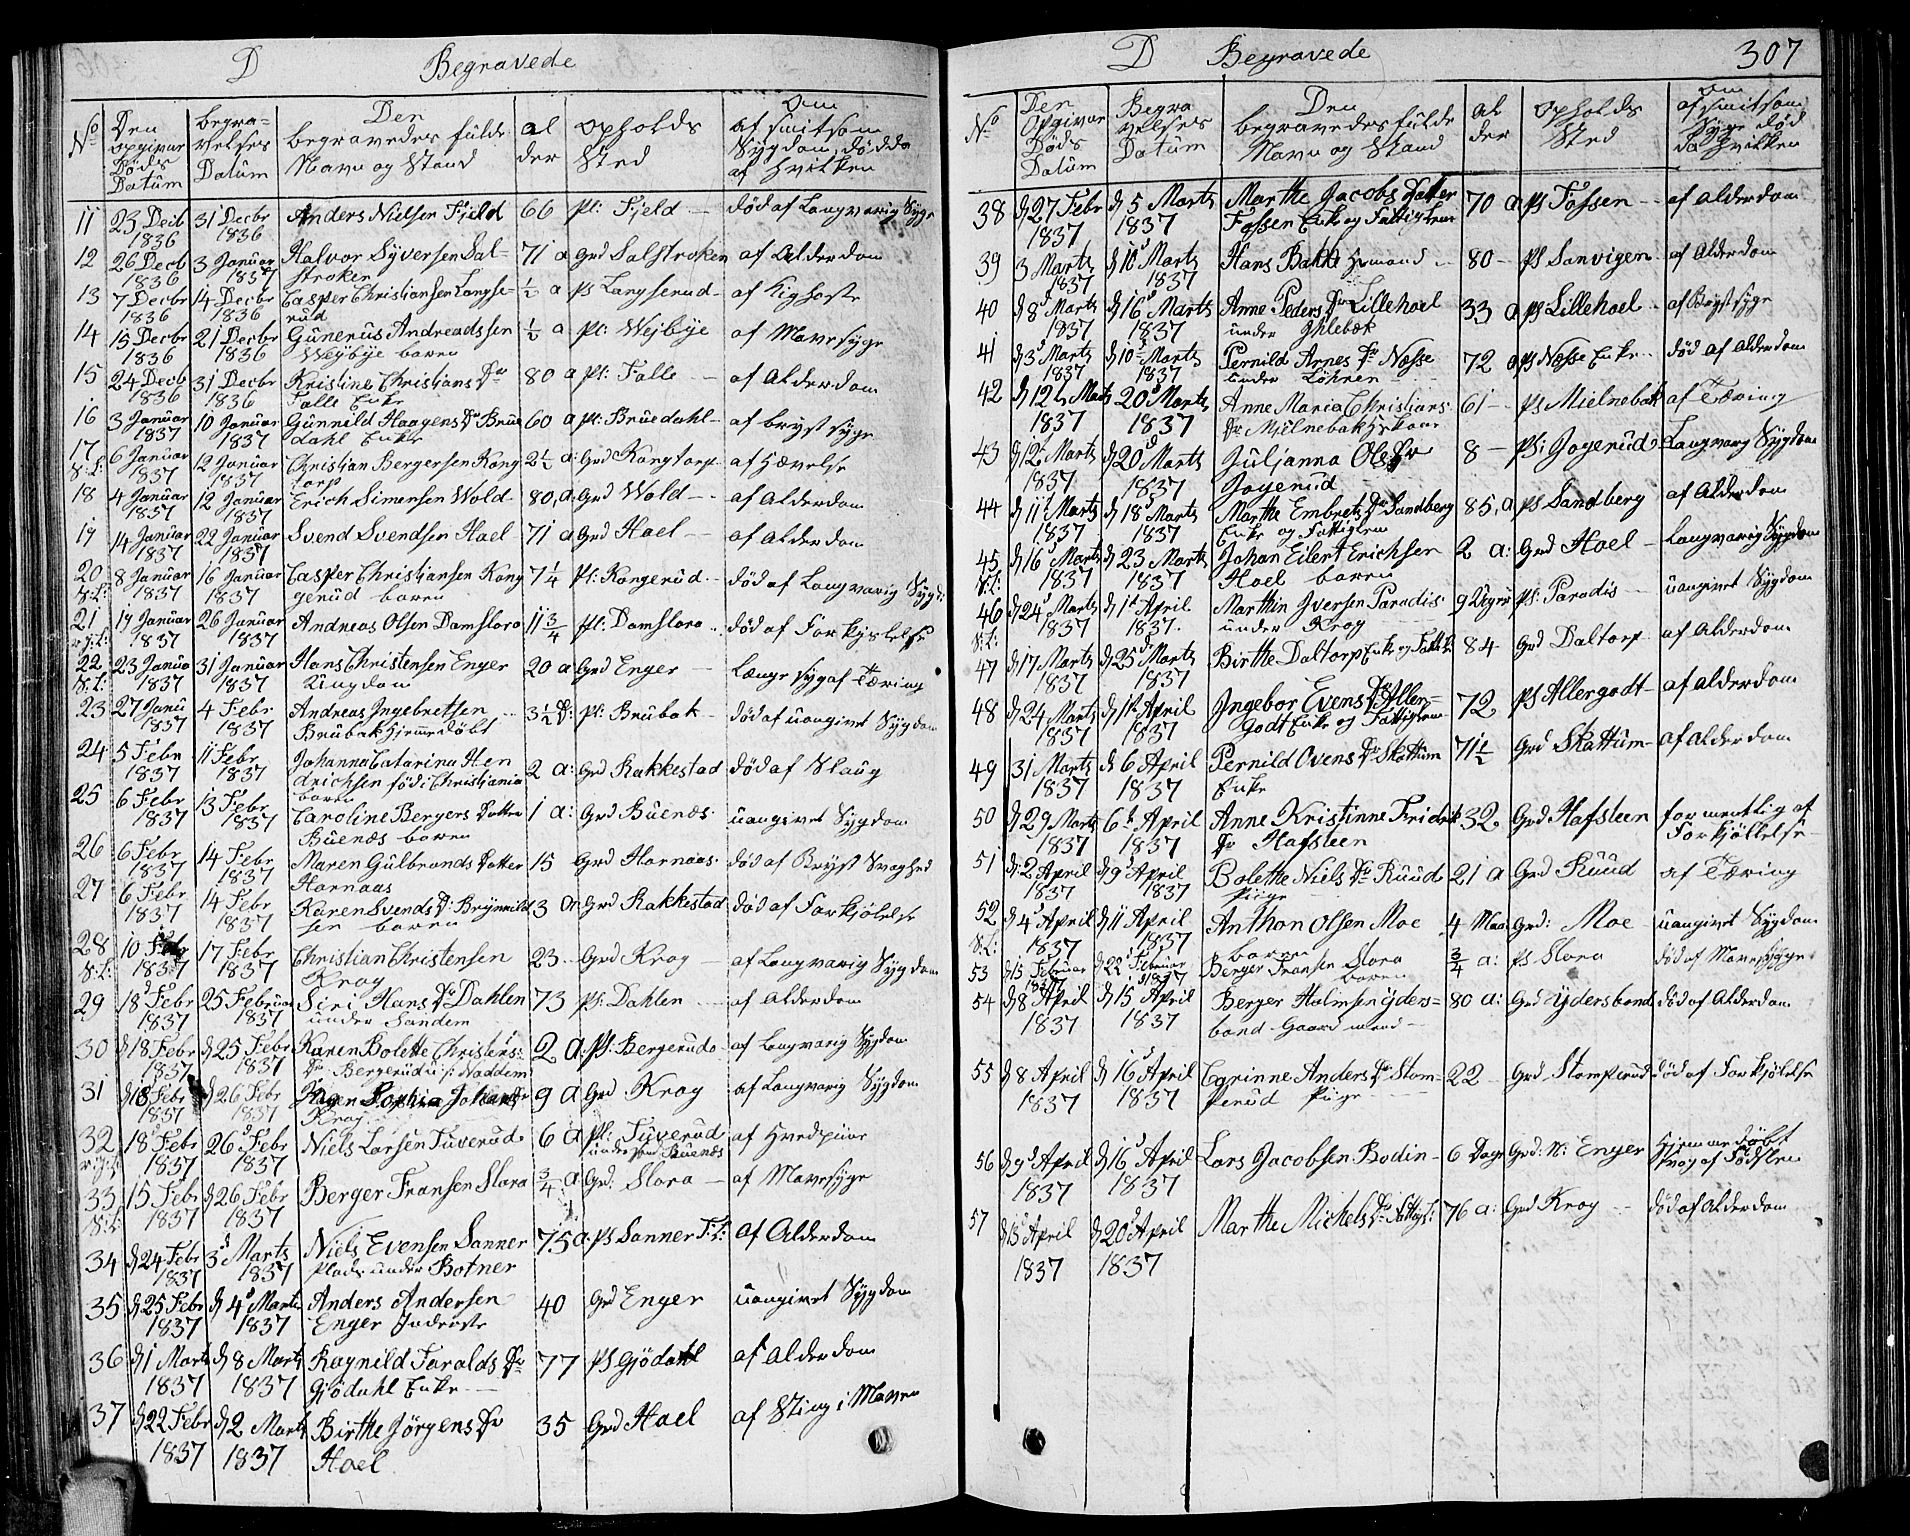 D Begravede
No
Den opgivne Døds Datum
begravelses Datum
Den begravedes fulde Navn og Stand
alder
opholds Sted
Om af smitsom Sygdom død da af hvilken
11 23 Decb 1836 31 Decbr 1836 Anders Nielsen Fjeld 66 pl: Fjeld død af Langvarig Syge
12 26 Decb 1836 3 Januar 1837 Halvor Syversen Salstroken 71 a Grd Salstroken af Alderdom
13 7 Decbr 1836 14 Decbr 1836 Casper Christiansen Langserud ½ a ps Langserud af Kighoste
14 15 Decbr 1836 21 Decbr 1836 Gunerus Andreadssen Wejbye baren ½ a pl: Wejbye af Mavesyge
15 24 Decb 1836 31 Decbr 1836 Kristine Christians Dr Falle Enke 80 a Pl: Falle af Alderdom
16 3 Januar 1837 10 Januar 1837 Gunnild Haagens Dr Bruedahl Enke 60 a Pl: Bruedahl af bryst syge
17 S:L: 6 Januar 1837 12 Januar 1837 Christian Bergersen Kongtorp 2½ a: Grd Kongtorp af Hævelse
18 4 Januar 1837 12 Januar 1837 Erich Simensen Wold 80, a Grd Wold af Alderdom
19 14 Januar 1837 22 Januar 1837 Svend Svendsen Hael 71 a Grd Hael af Alderdom
20 S:L: 8 Januar 1837 16 Januar 1837 Casper Christiansen Kongerud baren 7¼ Pl: Kongerud død af Langvarig Sygd:
21 19 Januar 1837 26 Januar 1837 Andreas Olsen Damslora 11¾ pl: Damslora død af Forkjølelse
22 S:L: 23 Janua 1837 31 Januar 1837 Hans Christensen Enger Ungdom 20 a Grd Enger Længe syg af Tæring
23 27 Janu 1837 4 Febr 1837 Andreas Ingebretsen Brubak Hjemedøbt 3½ D: Pl: Brubak død af uangivet Sygdom
24 5 Febr 1837 11 Febr 1837 Johanna Catarina Hendrichsen fød i Christiania baren 2 a: Grd Rakkestad død af Slaug
25 6 Febr 1837 13 Febr 1837 Caroline Bergers Datter Buenæs baren 1 a: Grd Buenæs uangivet Sygdom
26 6 Febr 1837 14 Febr 1837 Maren Gulbrands Datter Hornaas 15 Grd Hornaas død af Bryst Svaghed
27 6 Febr 1837 14 Febr 1837 Karen Svends D: Brynnildsen baren 3 a Grd Rakkestad død af Forkjølelse
28 S:L: 10 Febr 1837 17 Febr 1837 Christian Christensen Krog 23 Grd Krog af Langvarig Sygdom
29 18 Febr 1837 25 Februar 1837 Siri Hans Dr Dahlen under Sandem 73 Ps: Dahlen af Alderdom
30 d 18 Febr 1837 d 25 Febr 1837 Karen Bolette Christens: Dr Bergerud u/: Naddem 2 a: Ps: Bergerud af Langvarig Sygdom
31 d 18 Febr 1837 d 26 Febr 1837 Karen Sophia Johans Dr Krog 9 a Grd Krog af Langvarig Sygdom
32 18 Febr 1837 26 Febr 1837 Niels Larsen Tuverud 6 a Pl: Tuverud under Grd Buenæs af
33 S:L: 15 Febr 1837 d 26 Febr 1837 Berger Fransen Slora ¾ a Grd: Slora af Mavesyge
34 d 24 Febr 1837 3d Marts 1837 Niels Evensen Sanner Plads under Botner 75 a: Ps Sanner F:L: af Alderdom
35 d 25 Febr 1837 d 4d Marts 1837 Anders Andersen Enger Inderste 40 Grd Enger uangivet Sygdom
36 d 1 Marts 1837 d 8 Marts 1837 Ragnild Taralds Dr Gjødahl Enke 77 Ps Gjødahl af Alderdom
37 d 22 Febr 1837 d 2 Marts 1837 Birthe Jørgens Dr Hael 35 Grd Hael af Sting i Maven
D Begravede 307
No
Den Opgivne Døds Datum
Begravelses Datum
Den begravedes fulde Navn og Stand
alder
opholds Sted
om af smitsom Syge død da hvilken
38 d 27 Febr 1837 d 5 Marts 1837 Marthe Jacobs Datter Fossen Enke og Fattiglem 70 a ps Fossen af Alderdom
39 3 Marts 1837 d 10 Marts 1837 Hans Bakke 80 Ps Sanvigen af Alderdom
40 d 8 Marts 1837 d 16d Marts 1837 Anne Peders Dr Lillehoel under 33 a ps Lillehoel af Bryst syge
41 d 3d Marts 1837 d 10d Marts 1837 Pernild Arnes Dr Næsse under Løhren 72 a ps Næsse Enke død af Alderdom
42 d 12 Marts 1837 20d Marts 1837 Anne Maria Christians: Dr Mielnebak 61 ps Mielnebak af Tæring
43 d 12 Marts 1837 d 20d Marts 1837 Juljanna Ols Dr Joyerud 8 Ps: Joyerud Langvarig Sygdom
44 d 11 Marts 1837 d 18d Marts 1837 Marthe Embrets Dr Sandberg Enke og Fattiglem 85, a Ps Sandberg af Alderdom
45 S:L: d 16d Marts 1837 d 23 Marts 1837 Johan Eilert Erichsen Hoel baren 2 a: Grd Hoel Langvarig Sygdom
46 S:L: d 24d Marts 1837 d 1d April 1837 Marthin Iversen Paradis under Krog 9 Uger Ps: Paradis uangivet Sygdom
47 d 17 Marts 1837 d 25d Marts 1837 Birthe Daltorp Enke og 84 Grd Daltorp af Alderdom
48 d 24 Marts 1837 d 1d April 1837 Ingebor Evens Dr Allergodt Enke og Fattiglem 72 Ps Allergodt af alderdom
49 31 Marts 1837 d 6 April 1837 Pernild Ovens Dr Skattum Enke 71½ Grd Skattum af alderdom
50 d 29 Marts 1837 6d April 1837 Anne Kristinne Fridrik Dr Hafsteen 32 Grd Hafsteen formentlig af Forkjøllelse
51 d 2 April 1837 d 9d April 1837 Bolethe Niels Dr Ruud Piige 21 a Grd Ruud af Tæring
52 S:L: d 4d April 1837 d 11 April 1837 Anthon Olsen Moe baren 4 Maa Grd: Moe uangivet Sygdom
53 d 15 Februar 1837 d 22d Februar 1837 Berger Fransen Slora baren ¾ a: ps Slora død af Mavesyge
54 d 8 April 1837 d 15 April 1837 Berger Halmsen Ydersbond Gaardmand 80 a: Grd Ydersbond død af Alderdom
55 d 8 April 1837 d 16d April 1837 Corinne Anders Dr Stomperud Piige 22 Grd Stomperud død af Forkjølelse
56 d 9d April 1837 d 16d April 1837 Lars Jacobsen Bodin 6 Dage Grd: N: Enger Hjemmedøbt Svag af Fødslen
57 d 13d April 1837 d 20d April 1837 Marthe Michels Dr 76 a: Grd Krog død af Alderdom